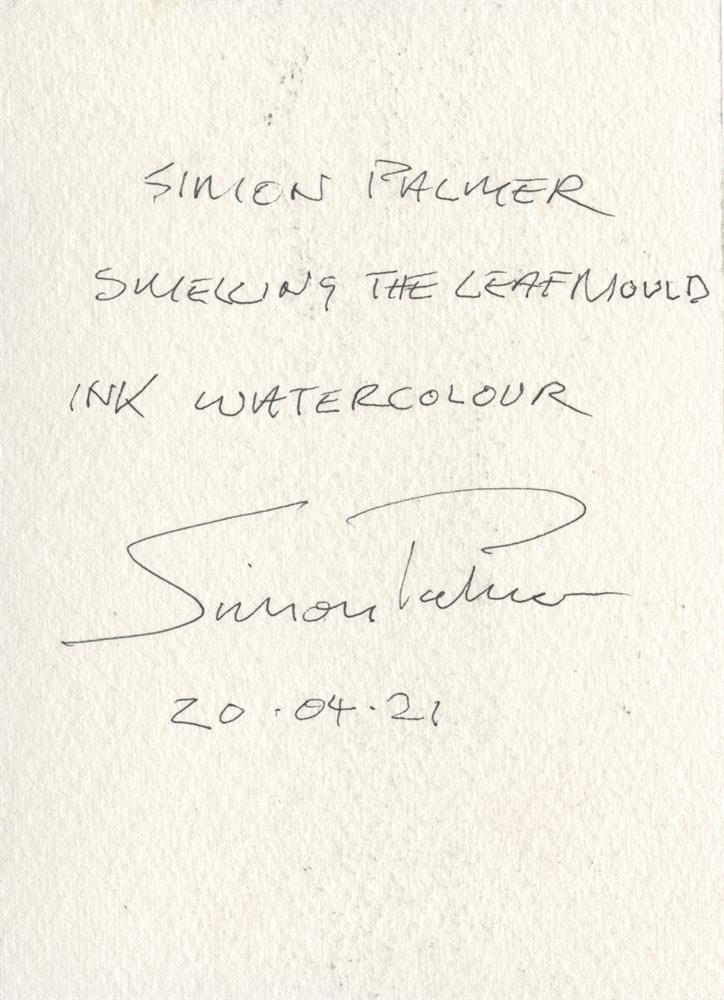 SIMON PALMER
SMELLING THE LEAFMOULD
INK WATERCOLOUR
Simon Palmer
20.04.21